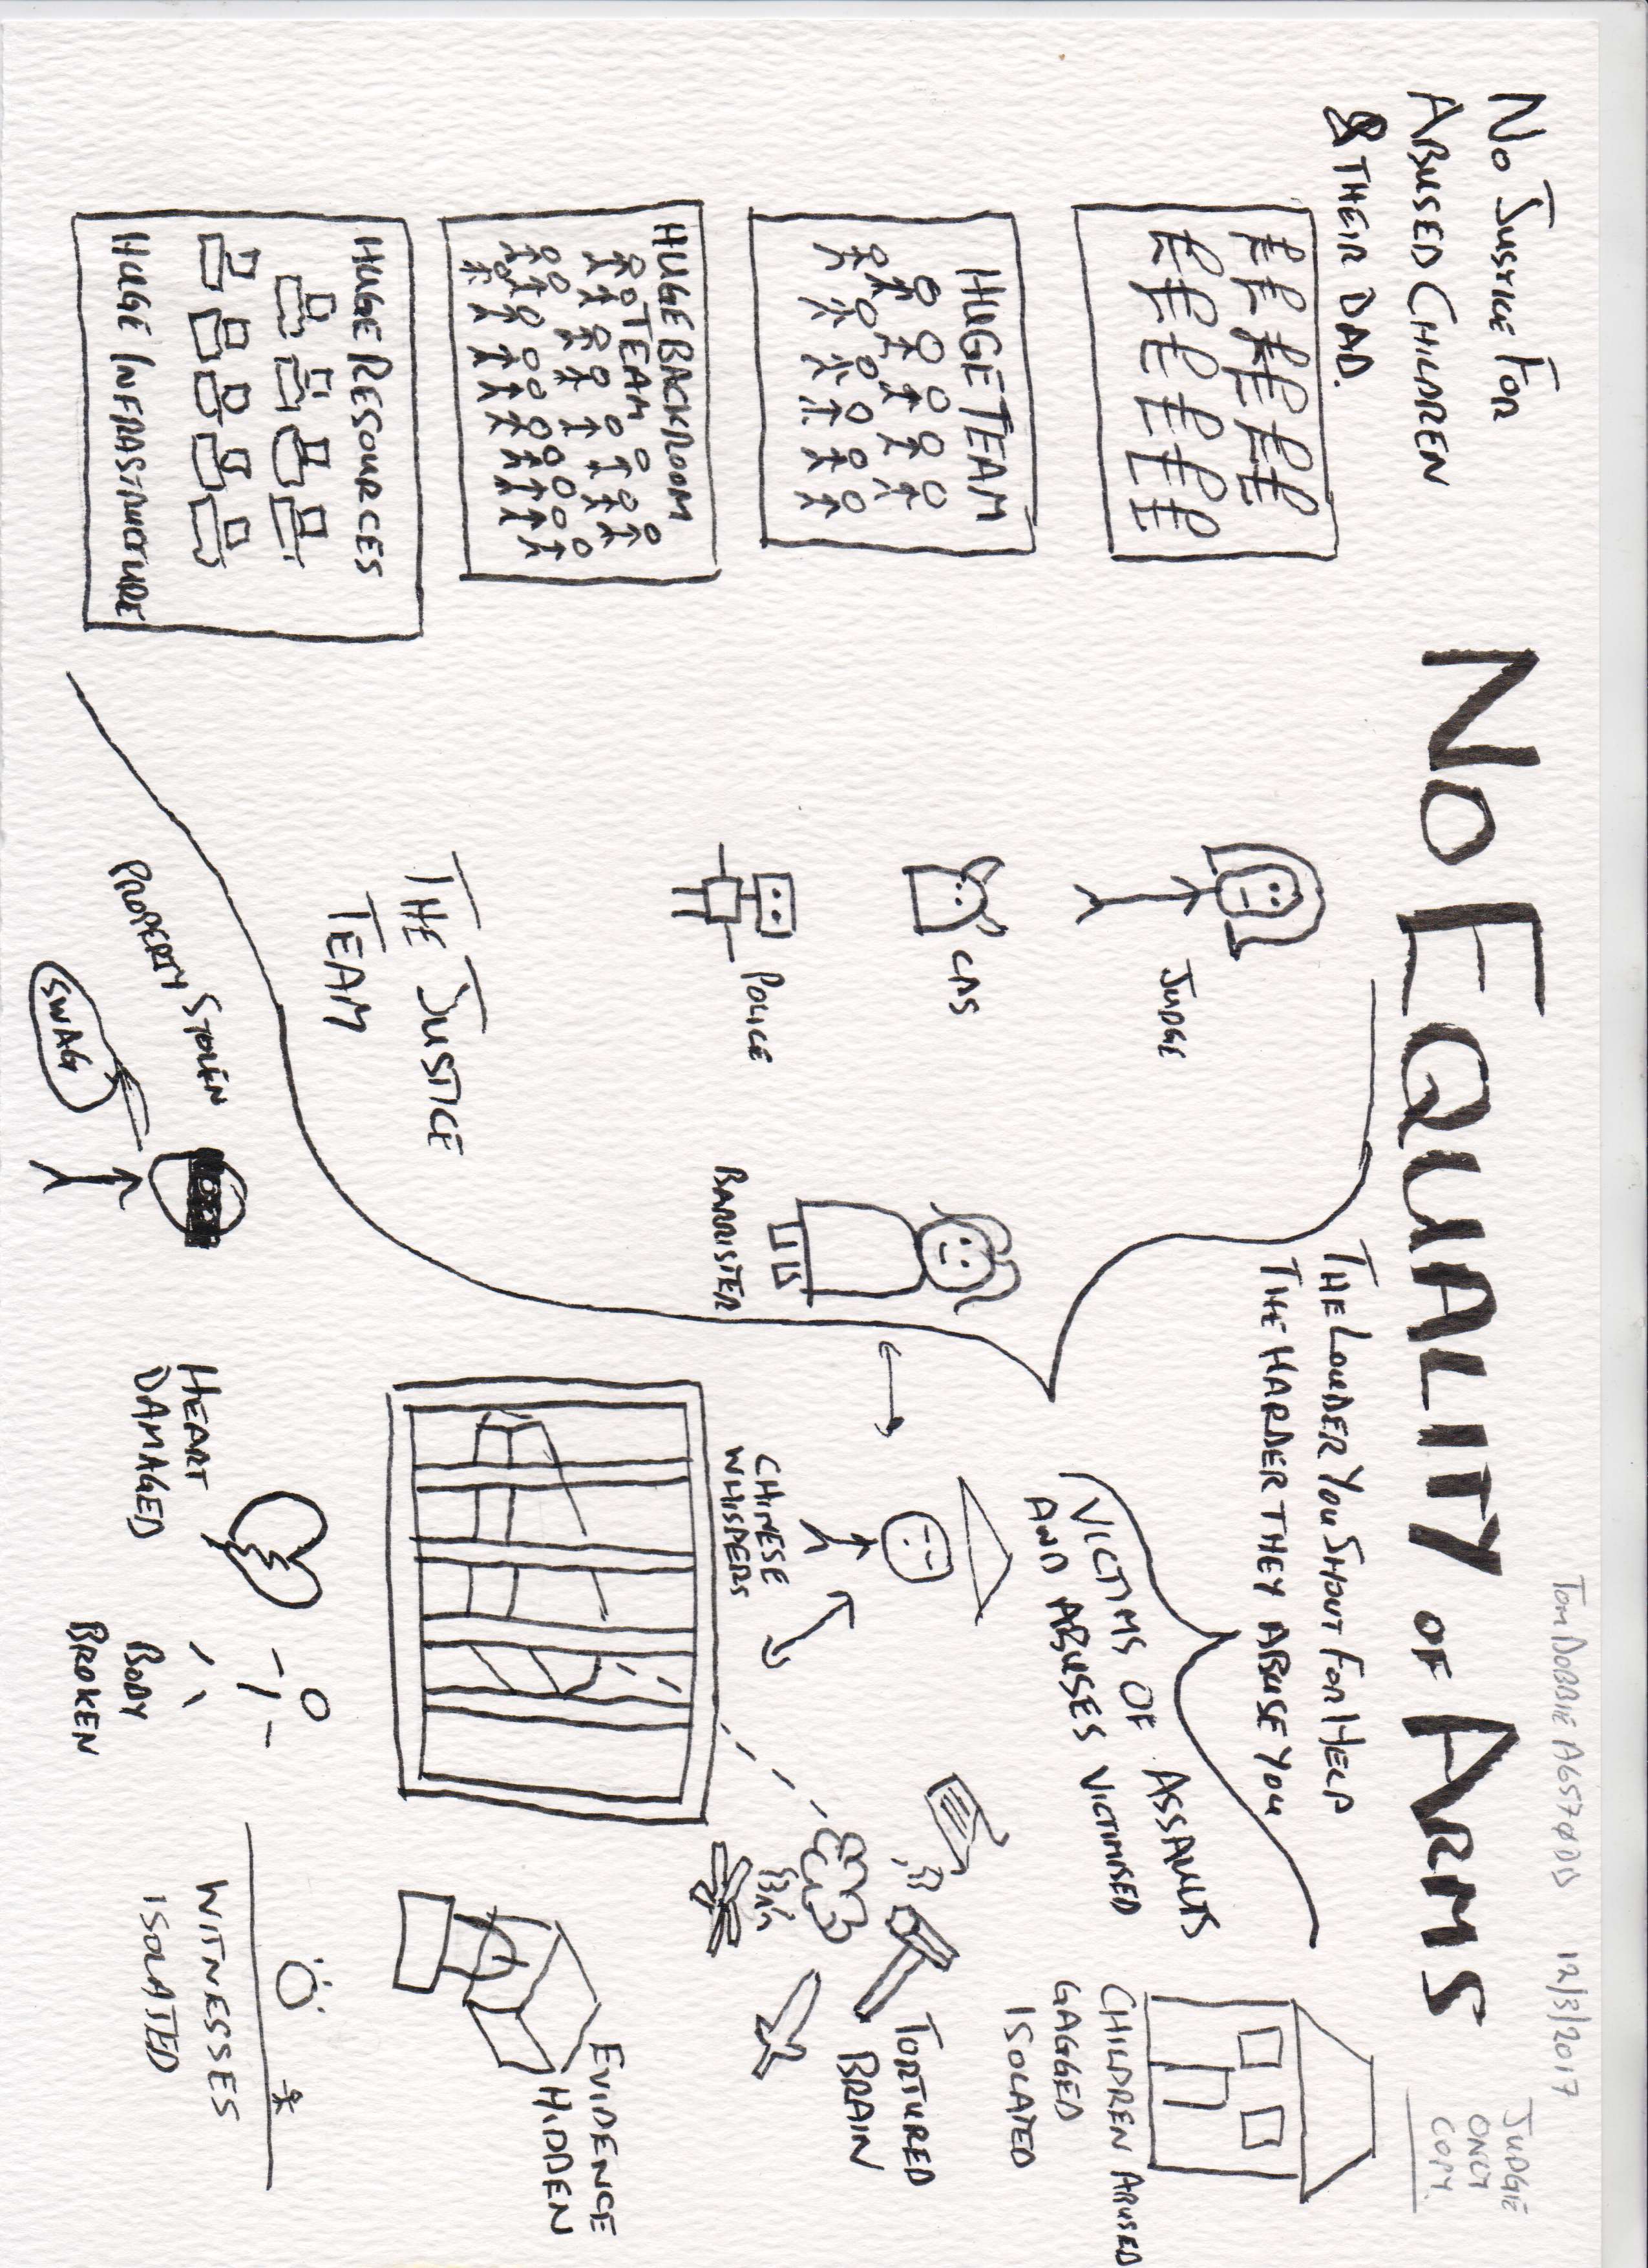 Tom Dobbie A6570DD 12/3/2017
JUDGE
ONLY
COPY.
NO EQUALITY OF ARMS
NO JUSTICE FOR
ABUSED CHILDREN
& THEIR DAD.
THE LOUDER YOU SHOUT FOR HELP
THE HARDER THEY ABUSE YOU
£££££££
££££££
HUGE TEAM
HUGE BACKROOM
TEAM
HUGE RESOURCES
HUGE INFRASTRUCTURE
JUDGE
CPS
POLICE
BARRISTER
THE JUSTICE
TEAM
VICTIMS OF ASSAULTS
AND ABUSES VICTIMISED
CHINESE
WHISPERS
CHILDREN ABUSED
GAGGED
ISOLATED
TORTURED
BRAIN
EVIDENCE
HIDDEN
PROPERTY STOLEN
SWAG
HEART
DAMAGED
BODY
BROKEN
WITNESSES
ISOLATED